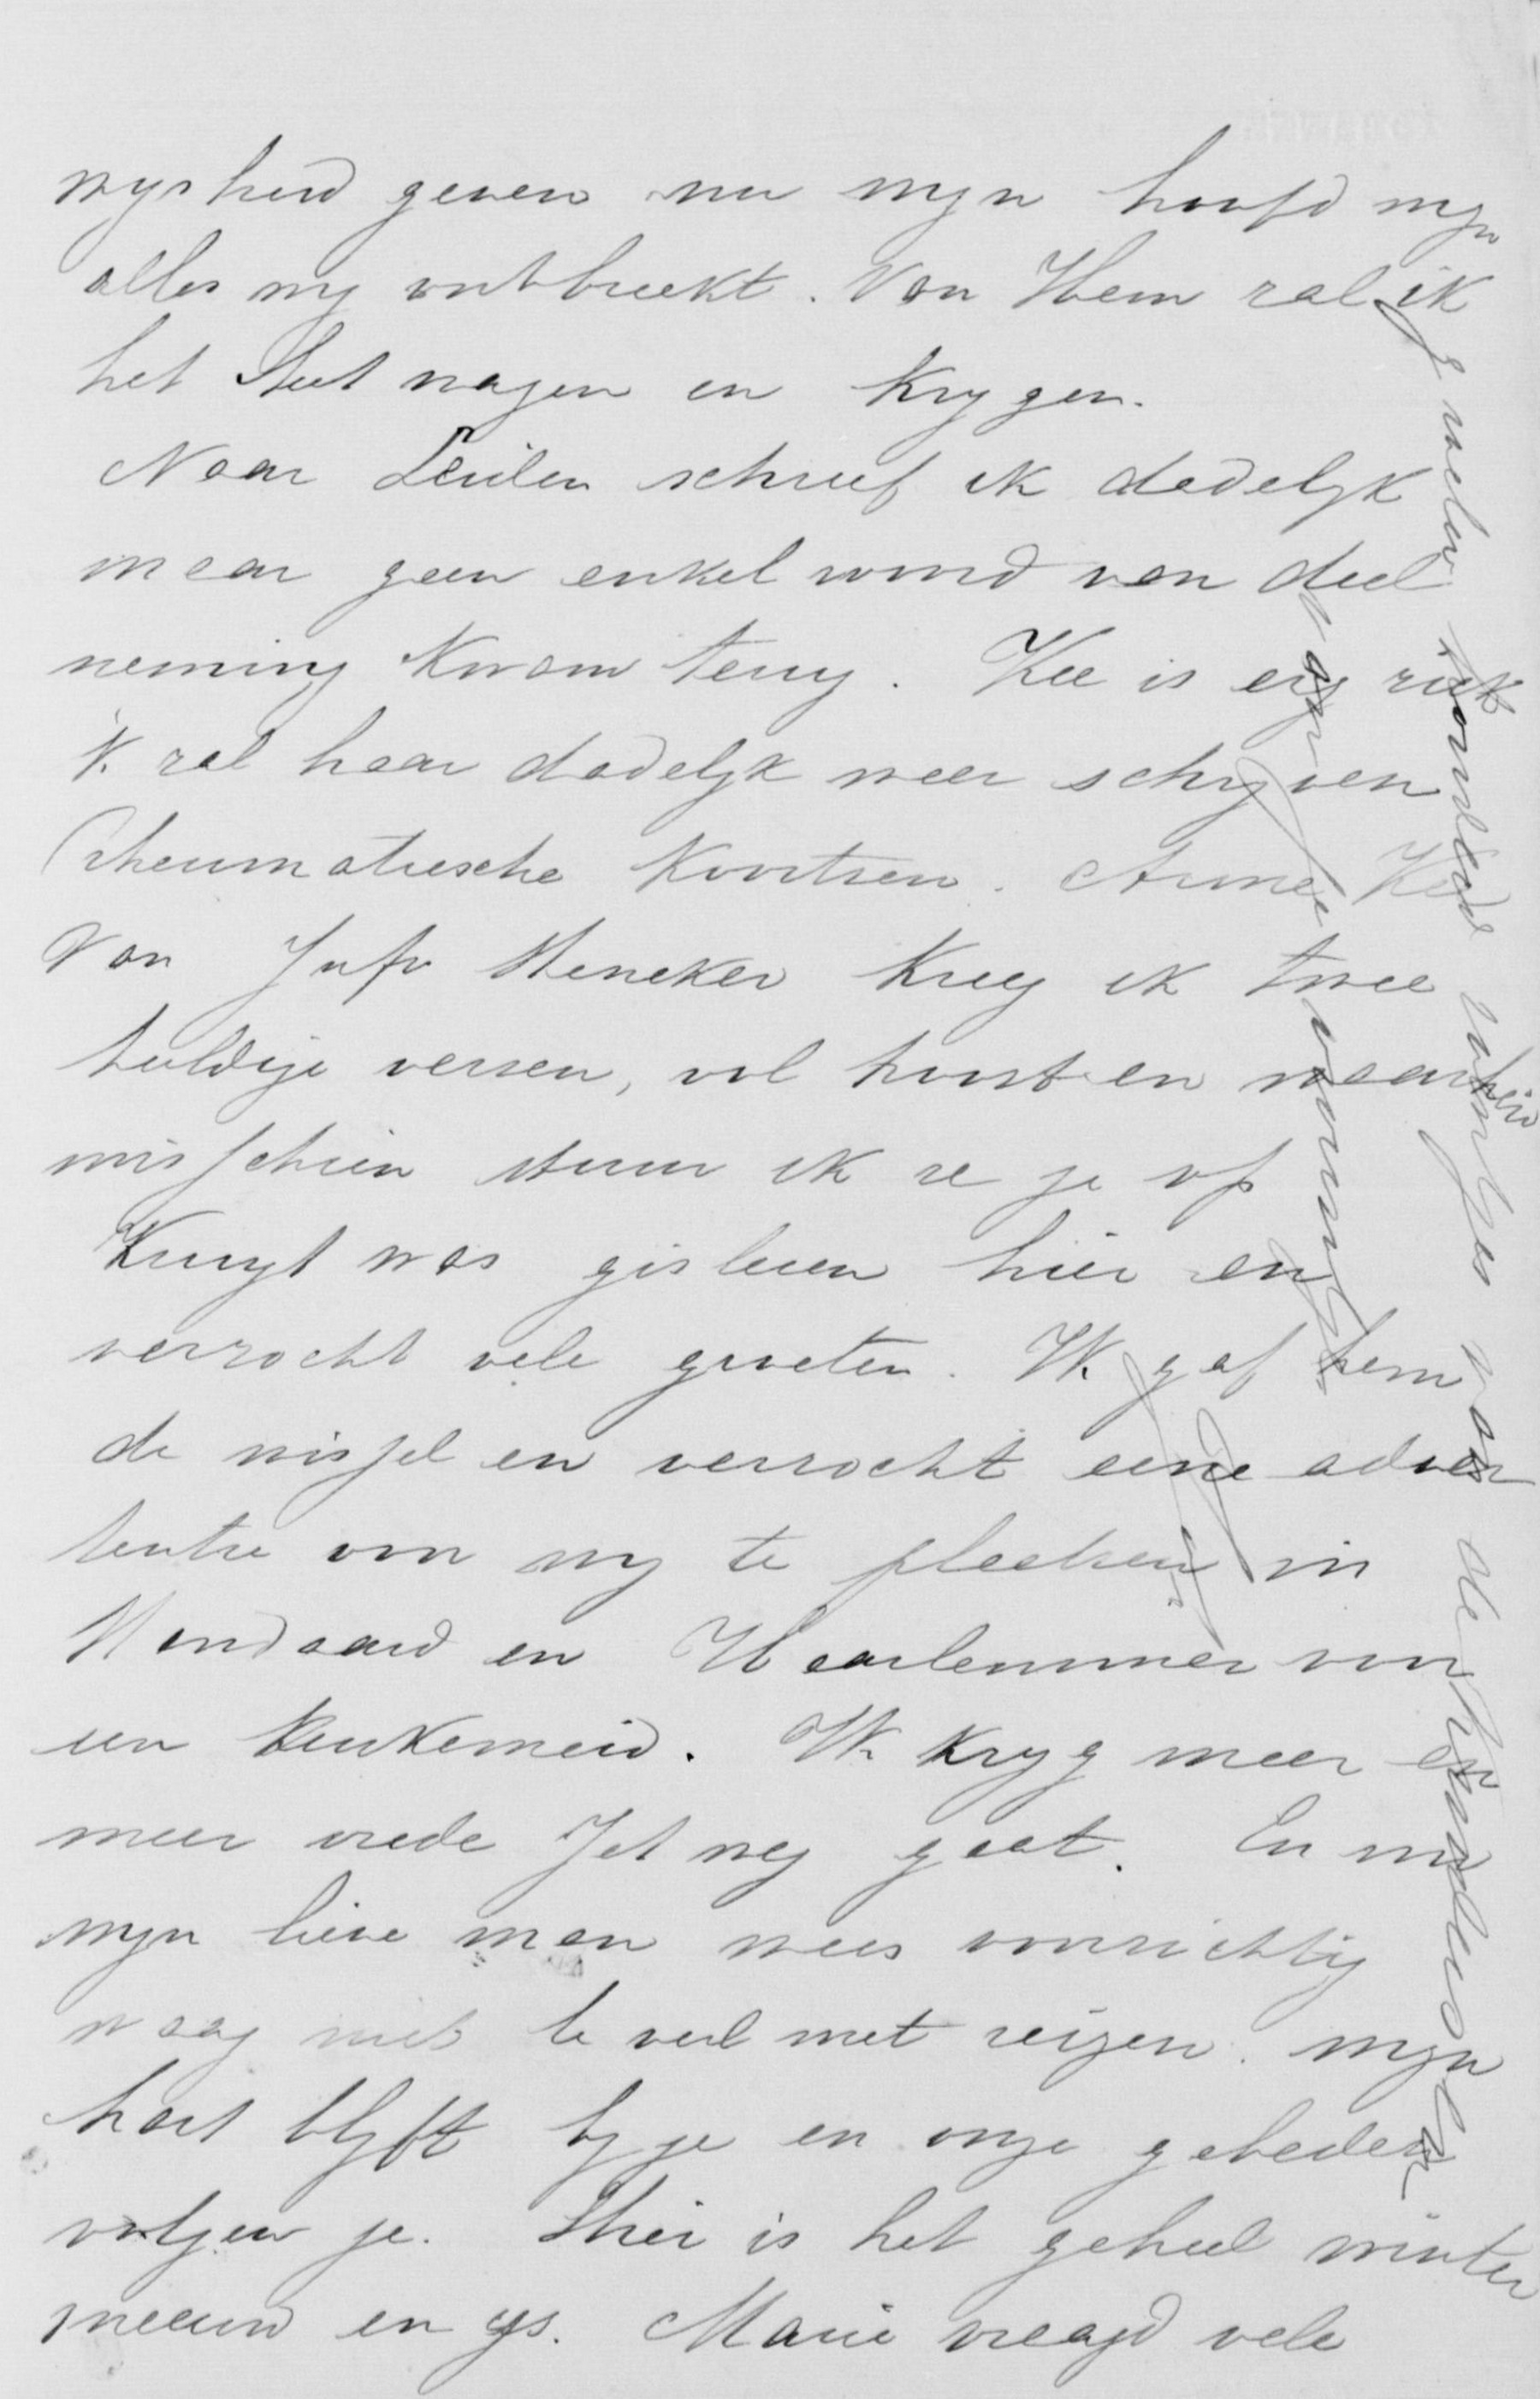 wysheid geven nu myn hoofd myn
alles my ontbreekt. Van Hem zal ik
het vragen en krygen.
Naar Leiden schreef ik dadelyk
maar geen enkel woord van deel
neming kwam terug. Kee is erg ziek
'k zal haar dadelyk weer schryven
rheumatiesche koortsen. Arme Kee
Van Jufr Heneker kreeg ik twee
versen, vol troost en waarheid
misschien stuur ik ze je op
Kruyt was gisteren hier en
verzocht vele groeten. Ik gaf hem
de wissel en verzocht eene adver
tentie voor my te plaatsen in
Standaard en Haarlemmer voor
een keukemeid. Ik kryg meer en
meer vrede Jet weg gaat. En nu
myn lieve man wees voorzichtig
waag niet te veel met reizen. myn
hart blyft by je en onze gebeden
volgen je. Hier is het geheel winter
sneeuw en ys. Marie vraagd vele